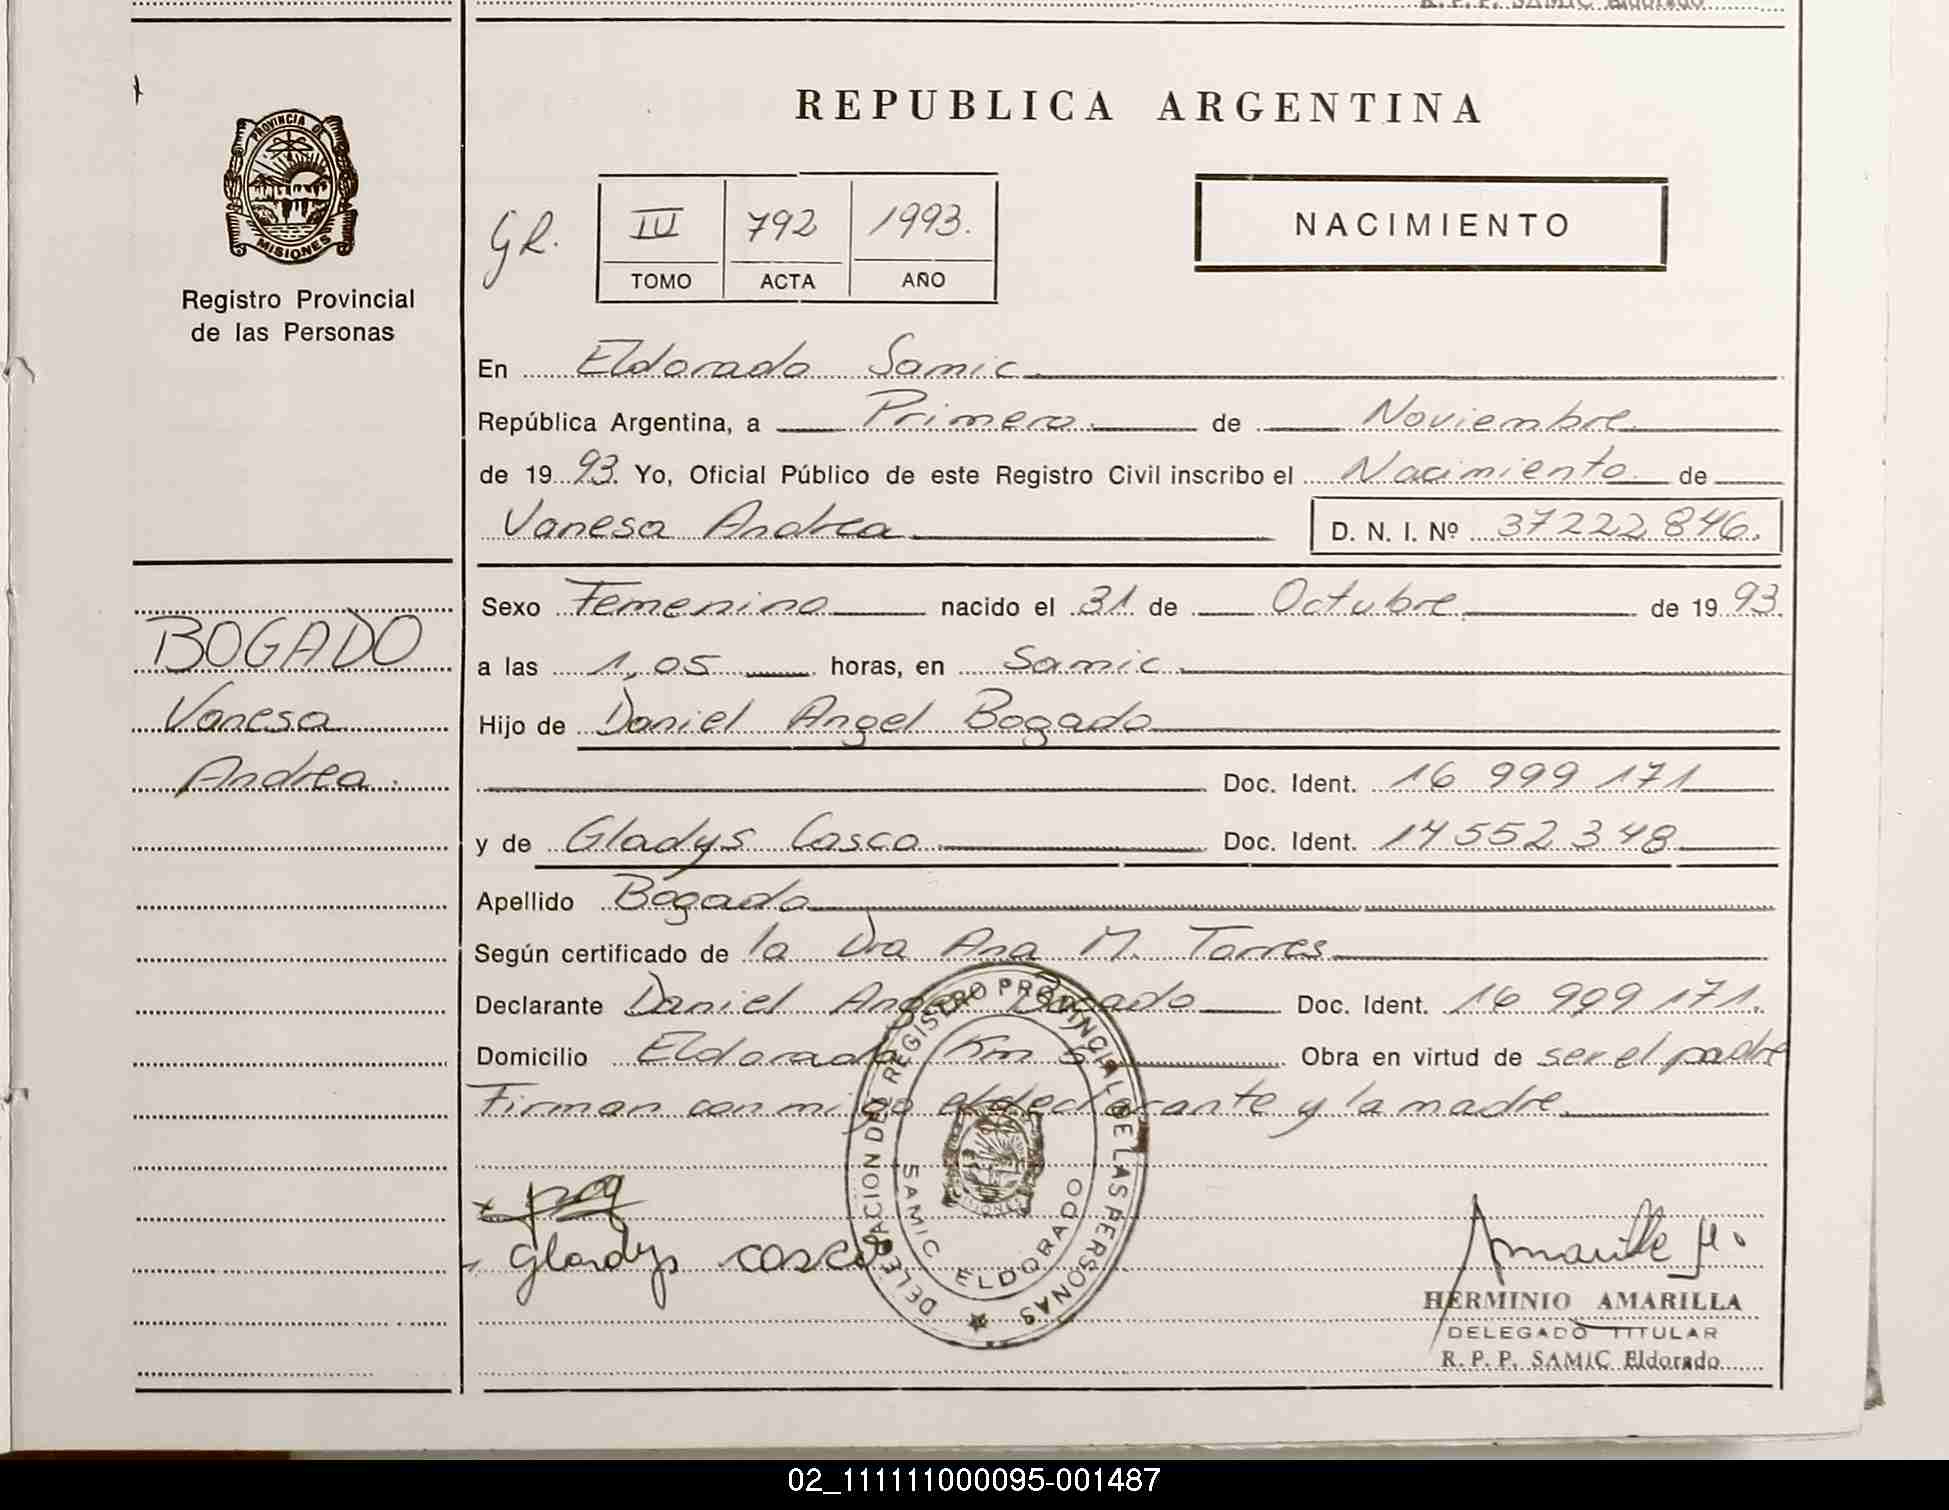 R. P. P. SAMIC Eldorado
REPUBLICA ARGENTINA
PROVINCIA DE
MISIONES
Registro Provincial
de las Personas
GR.
IV 792 1993.
TOMO ACTA AÑO
NACIMIENTO
En Eldorado Samic.
República Argentina, a Primero de Noviembre
de 19 93. Yo, Oficial Público de este Registro Civil inscribo el Nacimiento de
Vanesa Andrea D. N. I. Nº 37222846.
Sexo Femenino nacido el 31 de Octubre de 19 93.
BOGADO
Vanesa
Andrea.
a las 1,05 horas, en Samic.
Hijo de Daniel Angel Bogado
Doc. Ident. 16 999 171
y de Gladys Casco Doc. Ident. 14 552 348
Apellido Bogado
Según certificado de la Dra Ana M. Torres
Declarante Daniel Angel Bogado Doc. Ident. 16 999 171.
Domicilio Eldorado Km 5 Obra en virtud de ser el padre
Firman con migo el declarante y la madre
DELEGACION DEL REGISTRO PROVINCIAL DE LAS PERSONAS
SAMIC ELDORADO
Gladys casco
Amarilla H.
HERMINIO AMARILLA
DELEGADO TITULAR
R. P. P. SAMIC Eldorado
02_111111000095-001487